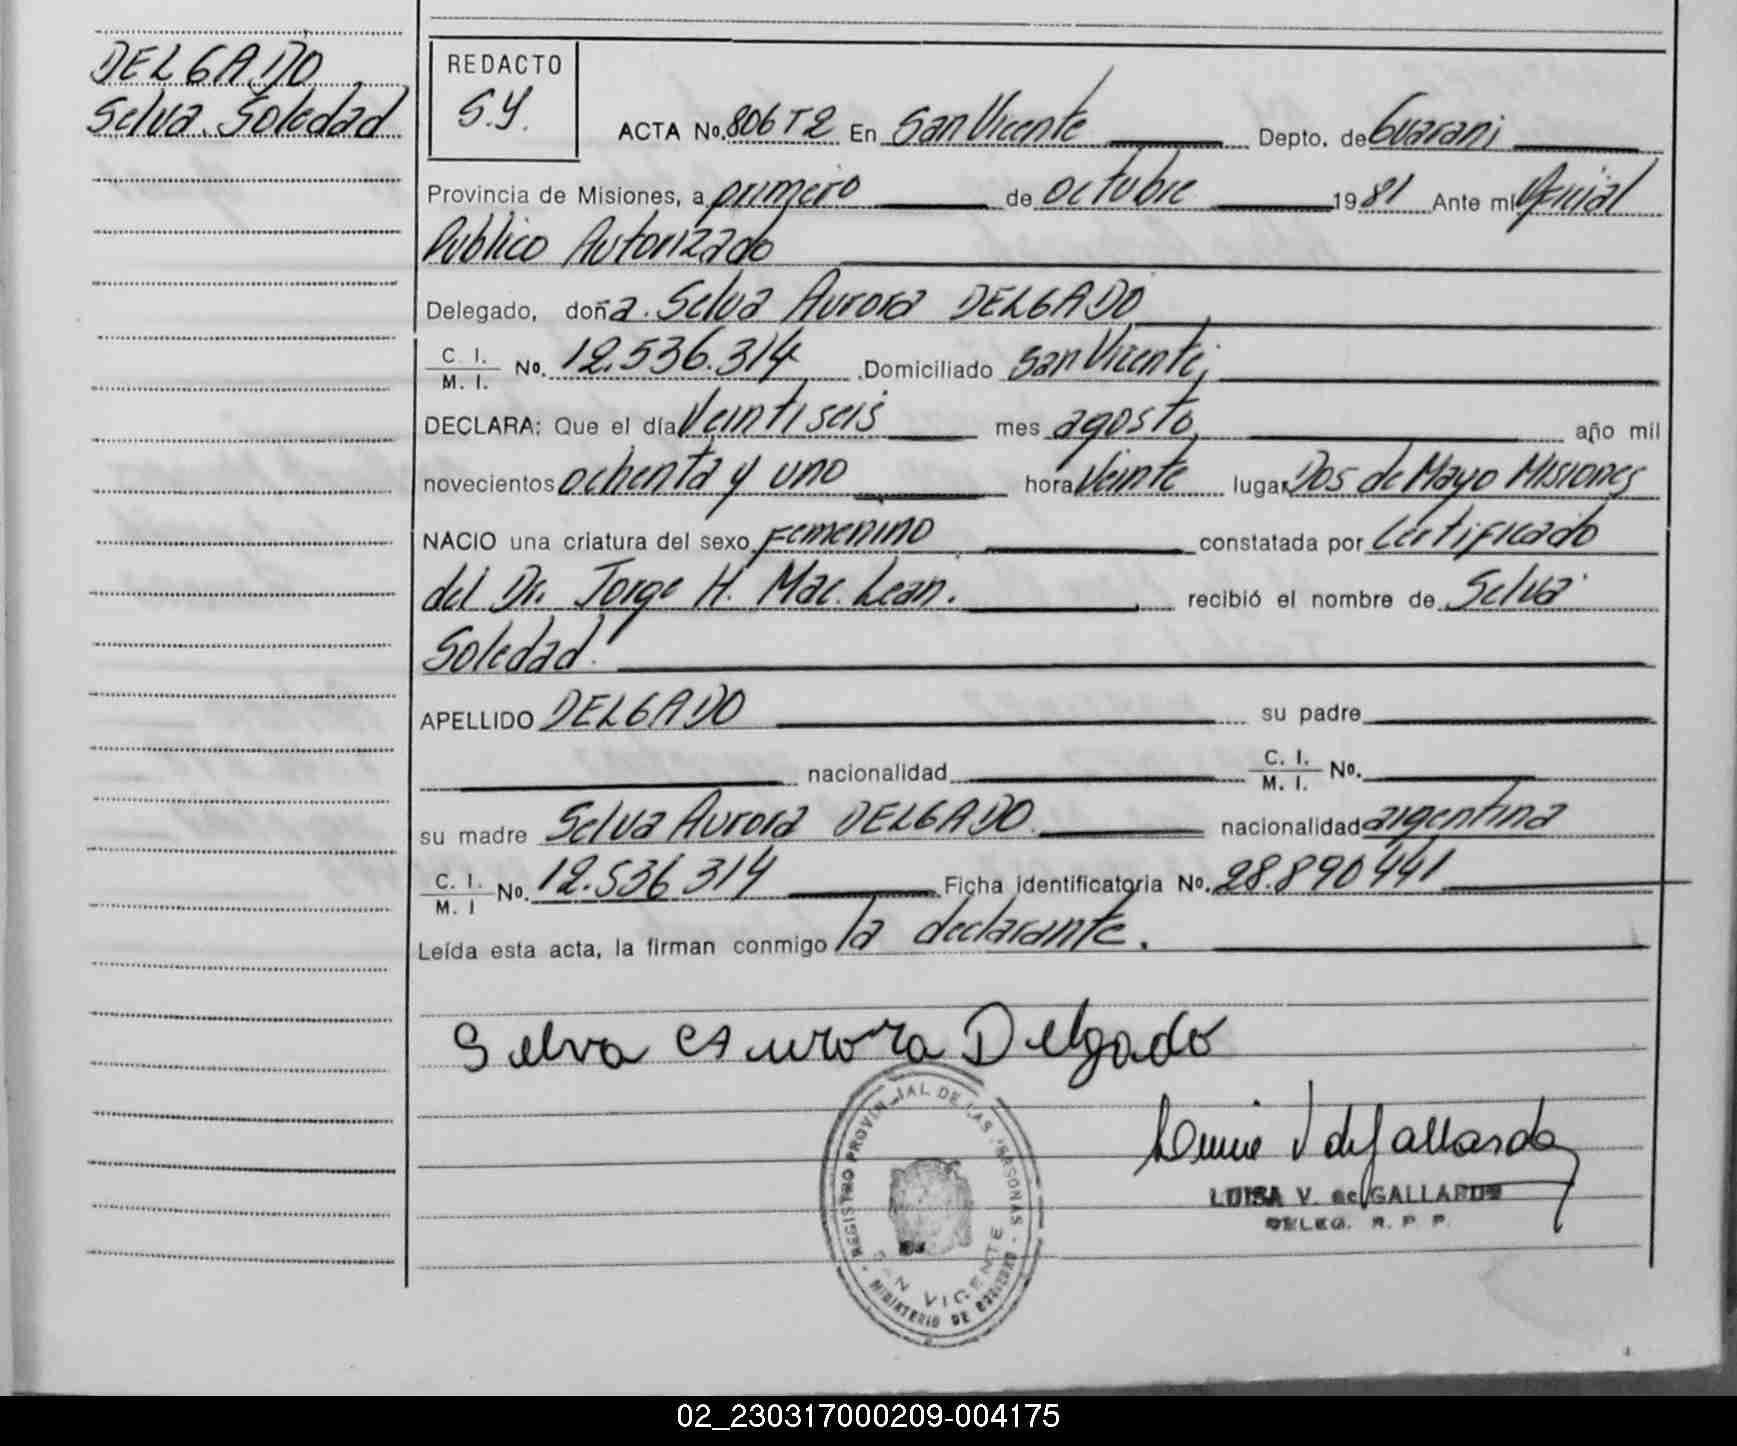 DELGADO
Selva Soledad
REDACTO
S.Y.
ACTA No. 806 T2 En San Vicente Depto. de Guarani
Provincia de Misiones, a primero de octubre 1981 Ante mi Oficial
Publico Autorizado
Delegado, doña. Selva Aurora DELGADO
C. I.
M. I. No. 12.536.314 Domiciliado San Vicente,
DECLARA: Que el día Veintiseis mes agosto, año mil
novecientos ochenta y uno hora Veinte lugar Dos de Mayo Misiones
NACIO una criatura del sexo Femenino constatada por Certificado
del Dr. Jorge H. Mac. Lean. recibió el nombre de Selva
Soledad.
APELLIDO DELGADO su padre
nacionalidad C. I.
M. I. No.
su madre Selva Aurora DELGADO. nacionalidad argentina
C. I.
M. I No. 12.536 314 Ficha identificatoria No. 28.890441
Leída esta acta, la firman conmigo la declarante.
Selva Aurora Delgado
REGISTRO PROVINCIAL DE LAS PERSONAS
SAN VICENTE
MINISTERIO DE GOBIERNO
LUISA V. de GALLARDO
DELEG. R. P. P.
02_230317000209-004175